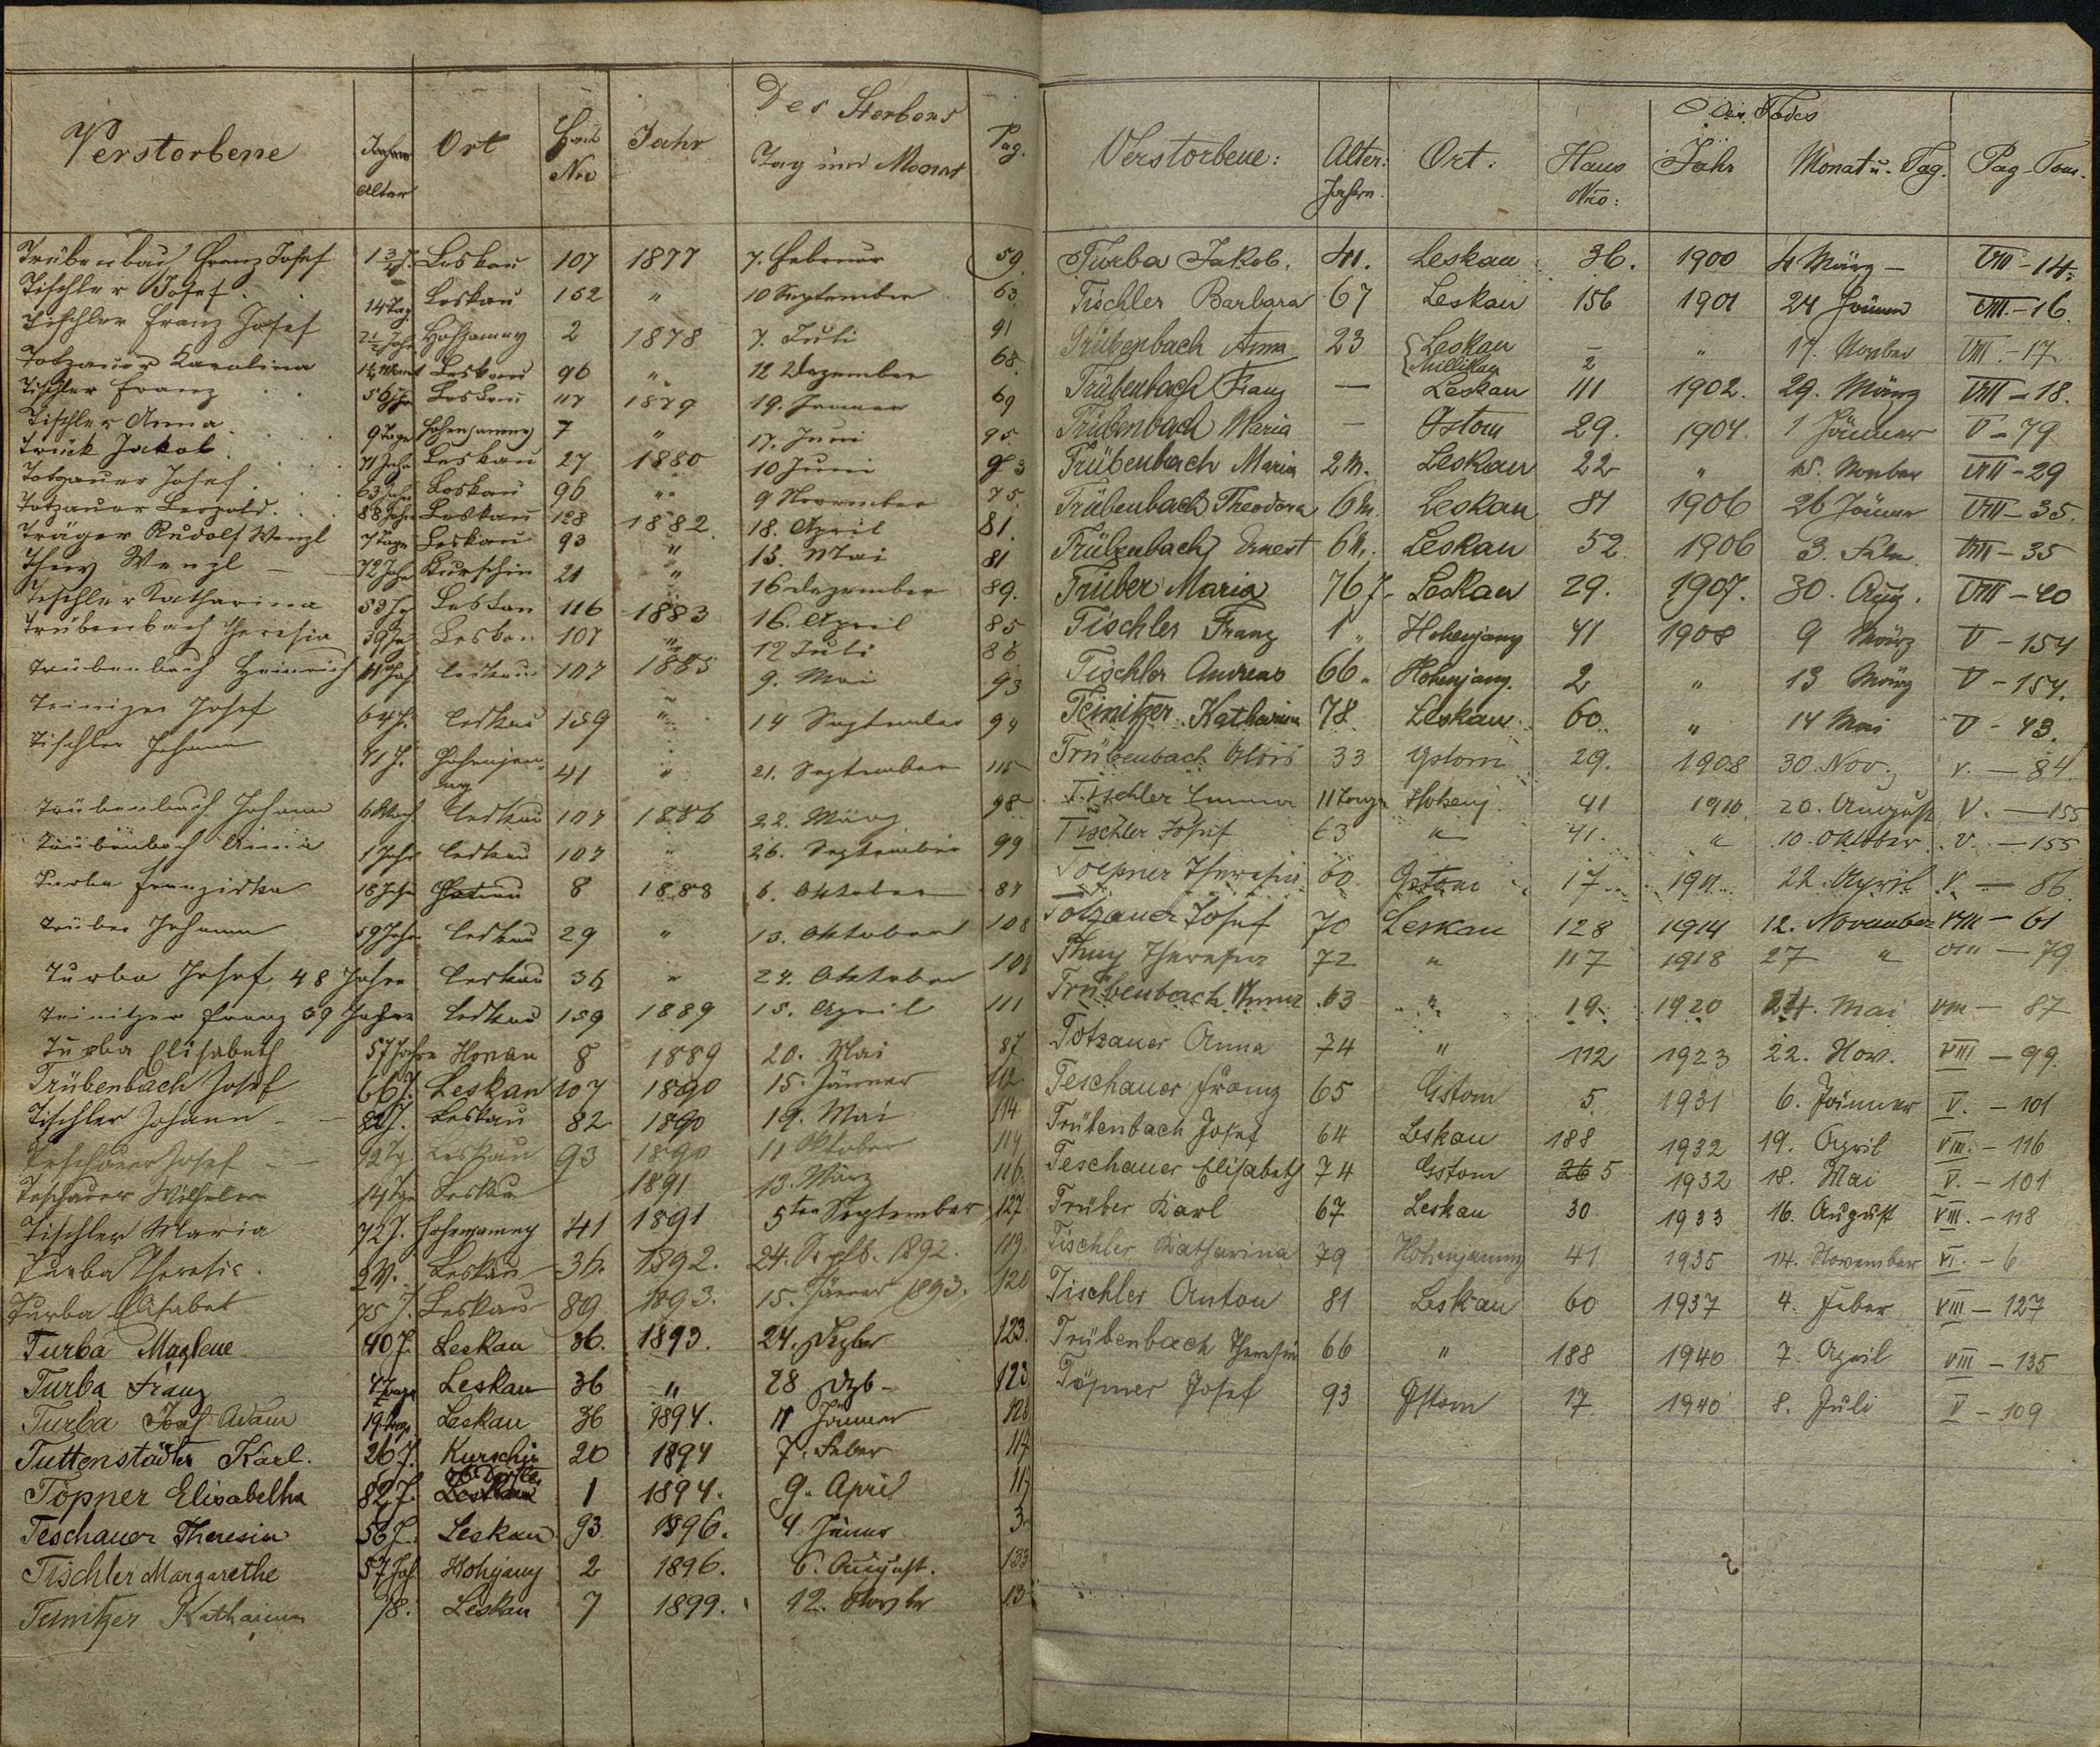 Verstorbene Jahre Alter Ort Haus Nro Jahr Des Sterbens Tag und Monat Pag.
Trübenbach Franz Josef 1 3/4 J. Leskau 107 1877 7. Februar 59
Tischler Josef. 14 Tag Leskau 152 " 10 September 63
Tischler Franz Josef 2 1/2 Jahr 2 1878 7. Juli 91
Totzauer Karolina Leskau 96 " 12 Dezember 68.
Tischler Franz 56 Jahr Leskau 117 1879 19. Jänner 69
Tischler Anna. 9 Tage Hohenjamny 7 " 17. Juni 95
Trück Jakob. 71 Jahr Leskau 27 1880 10 Juni 73
Totzauer Josef. 63 Jahr Leskau 96 " 9 November 75
Totzauer Leopold. 88 Jahr Leskau 128 1882. 18. April 81.
Träger Rudolf Wenzl 7 Tage Leskau 93 " 13. Mai 81
Thuy Wenzl 72 Jahr Kurschin 21 " 16 Dezember 89.
Teschler Katharina 58 J. Leskau 116 1883 16. April 85
Trübenbach Theresia Leskau 107 " 12 Juli 86
Trübenbach Heinrich Leskau 107 1885 9. Mai 93
Teinizer Josef 64 J. Leskau 159 " 14 September 94
Tischler Johann 71 J. Hohenjam- 41 " 21. September 115
Trübenbach Johann Leskau 107 1886 22. März 98
Trübenbach 1 Jahr Leskau 107 " 26. September 99
Turba Franziska 18 Jahr 8 1888 6. Oktober 87
Trüber Johann 59 Jahr Leskau 29 " 13. Oktober 108
Turba Josef 48 Jahre Leskau 36 " 24. Oktober 108
Teinitzer Franz 59 Jahre Leskau 159 1889 15. April 111
Turba Elisabeth 57 Jahre Honau 8 1889 20. Mai 87
Trübenbach Josef 66 J. Leskau 107 1890 15. Jänner 112
Tischler Johann 82 J. Leskau 82 1890 19. Mai 114
Teschauer Josef 12 Tg. Leskau 93 1890 11 Oktober 114
Teschauer Wilhelm 14 Tge Leskau 1891 13. März 116.
Tischler Maria 72 J. Hohenjamny 41 1891 5ten September 127.
Turba Theresia. 2 M. Leskau 36. 1892. 24. Septb. 1892. 119.
Turba Elisabet 75 J. Leskau 89 1893. 15. Jänner 1893. 120
Turba Maglene 40 J. Leskau 36. 1893. 24. Dezber 123.
Turba Franz Leskau 36 " 28 Dzb- 123
Turba Josef Adam 19 Tage Leskau 36 1894. 11 Jänner 123
Tuttenstädter Karl. 26 J. Kurschin 20 1894 7. Feber 117
Töpner Elisabetha 82 J. 1 1894. 9. April 117
Teschauer Theresia 56 J. Leskau 93 1896. 4 Jänner 3
Tischler Margarethe 57 Jah Hohjamy 2 1896. 6. August. 133
Teinitzer Katharina 78. Leskau 7 1899. 12. Novber 13
Verstorbene: Alter: Jahren. Ort: Haus Nro: Des Todes Jahr Monat u. Tag. Pag-Tom.
Turba Jakob. 41. Leskau 36. 1900 4 März - VIII - 14.
Tischler Barbara 67 Leskau 156 1901 24 Jänner VIII. - 16.
Trübenbach Anna 23 Leskau - " 17. Novber VIII. - 17
Millikau 2
Trübenbach Franz - Leskau 111 1902. 29. März VIII - 18.
Trübenbach Maria - Gstom 29. 1904. 1 Jänner V - 79
Trübenbach Maria 2 M. Leskau 22 " 15. Novber VIII - 29
Trübenbach Theodora 6 M. Leskau 81 1906 26 Jänner VIII - 35.
Trübenbach Ernest 6 M. Leskau 52. 1906 3. Feber VIII - 35
Trüber Maria 76 J. Leskau 29. 1907. 30. Aug. VIII - 40
Tischler Franz 1 " Hohenjamy 41 1908 9 März V - 154
Tischler Andreas 66 " Hohenjamy. 2 " 13 März V - 154.
Teinitzer Katharina 78 Leskau 60. " 14 Mai V - 43.
Trübenbach Alois 33 Gstom 29. 1908 30. Nov. V. - 84
Tischler Emma 11 Tage Hohenj. 41 1910. 20. August V. - 155
Tischler Josef 63 " 41. " 10. Oktober. V. - 155
Toepner Theresia 60 Gstom 17 1911. 22. April V. - 86
Totzauer Josef 70 Leskau 128 1914 12. November VIII - 61
Thuy Theresia 72 " 117 1918 27 " VIII - 79
Trübenbach Anna 63 " 19 1920 24. Mai VIII - 87
Totzauer Anna 74 " 112 1923 22. Nov. VIII - 99.
Teschauer Franz 65 Gstom 5. 1931 6. Jänner V. - 101
Trübenbach Josef 64 Leskau 188 1932 19. April VIII. - 116
Teschauer Elisabeth 74 Gstom 26 5 1932 18. Mai V. - 101
Trüber Karl 67 Leskau 30 1933 16. August VIII. - 118
Tischler Katharina 79 Hohenjamny 41 1935 14. November VI. - 6
Tischler Anton 81 Leskau 60 1937 4. Feber VIII - 127
Trübenbach Theresia 66 " 188 1940 7. April VIII - 135
Töpner Josef 93 Gstom 17 1940 8. Juli V - 109